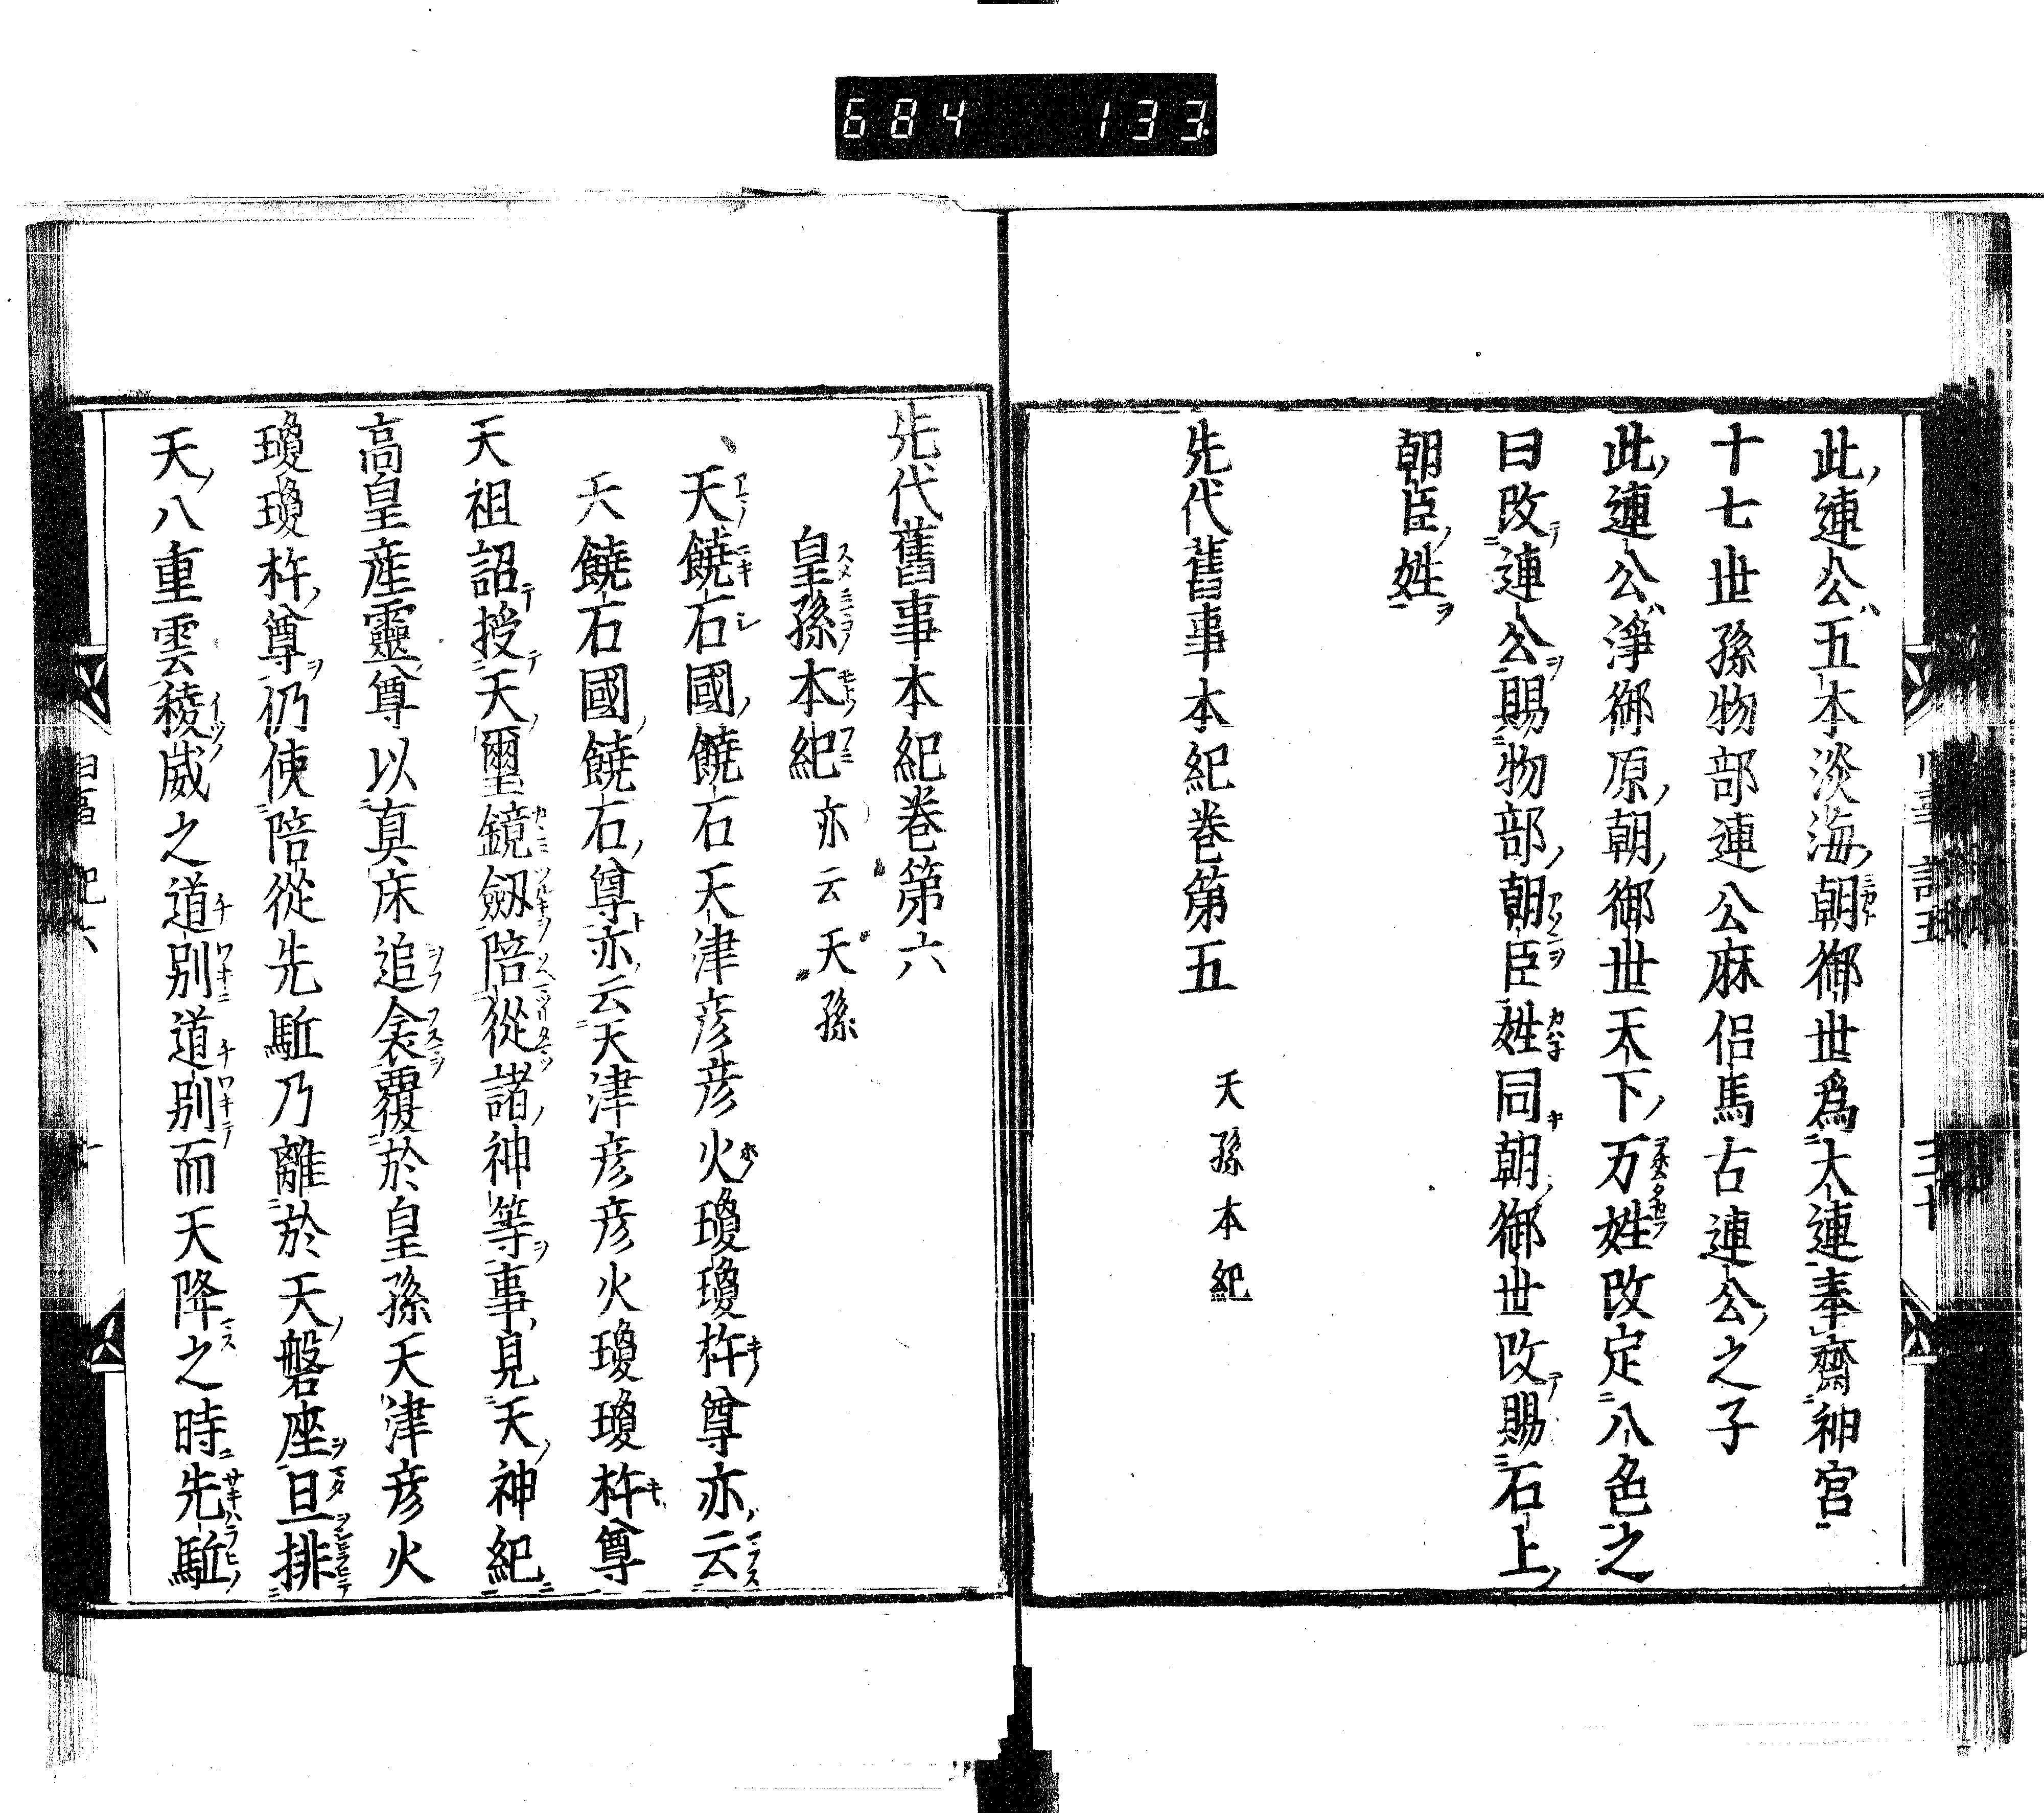 684 133
此連公五本淡海朝御世爲大連奉齋神宮
十七世孫物部連公麻侶馬古連公之子
此連公淨御原朝御世天下万姓改定八色之
日改連公賜物部朝臣姓同朝御世改賜石上
朝臣姓
先代舊事本紀巻第五 天孫本紀
先代舊事本紀巻第六
皇孫本紀 亦云天孫
天饒石國饒石天津彦彦火瓊瓊杵尊亦云
天饒石國饒石尊亦云天津彦彦火瓊瓊杵尊
天祖詔授天璽鏡劔陪從諸神等事見天神紀
高皇産靈尊以真床追衾覆於皇孫天津彦火
瓊瓊杵尊仍使陪從先駈乃離於天磐座且排
天八重雲稜威之道別道別而天降之時先駈